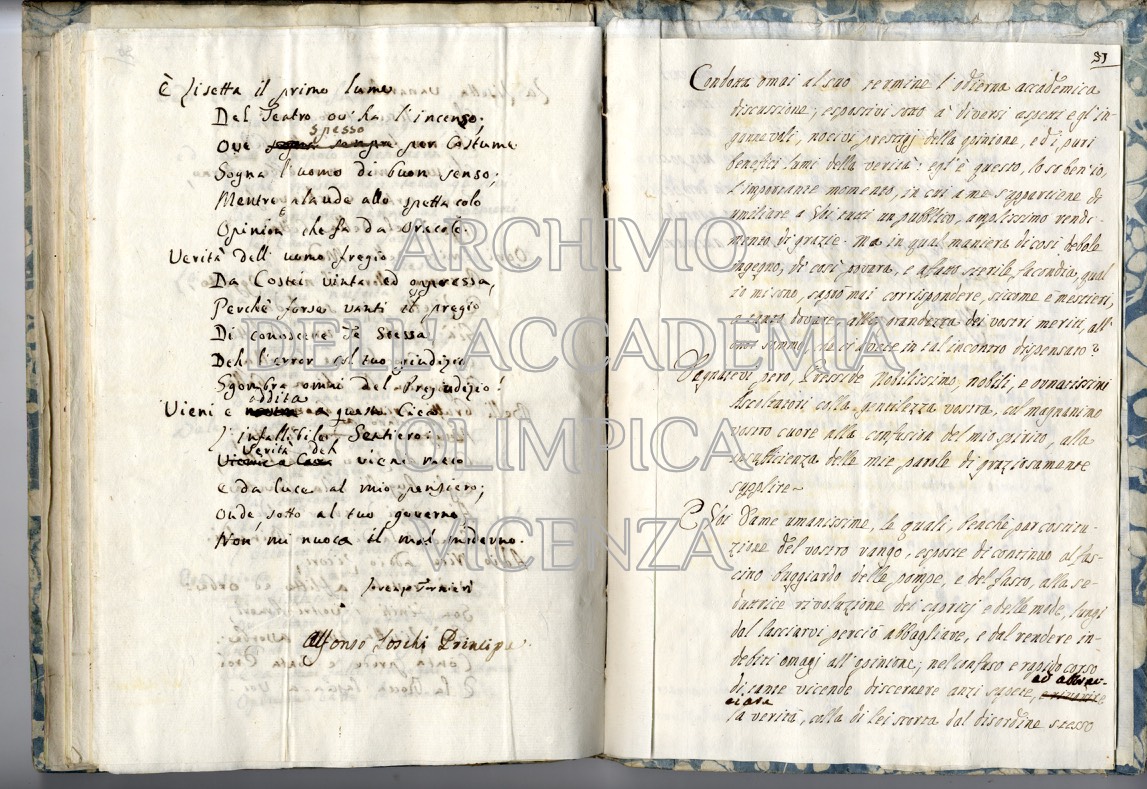 È Lisetta il primo lume
Del Teatro ov' ha l'incenso;
spesso
Ove per Costume
Sogna l'uomo di buon senso;
Mentre alaude allo spettacolo
Opinion che fà da Oracolo.
Verità dell' uomo fregio
Da Costei vinta, ed oppressa,
Perchè forse vanti il pregio
Di conoscere Te stessa
Deh l'error col tuo giudizio
Sgombra omai del Pregiudizio!
addita
Vieni e a questo Cieco
L'infallibile Sentiero:
Verità deh
vieni meco
E da luce al mio pensiero;
Onde sotto al tuo governo
Non mi nuoca il mal moderno.
Alfonso Loschi Principe
31
Condotta omai al suo termine l'odierna accademica
discussione, espostivi sotto a' diversi aspetti e gl'in-
gannevoli, nocivi prestigj della opinione, ed i puri
benefici lumi della verità: egl' è questo, lo so ben io,
l'importante momento, in cui a me s'appartiene di
umiliare a Voi tutti un pubblico, amplissimo rendi-
mento di grazie. Ma in qual maniera di così debole
ingegno, di così povera, e affatto sterile facondia, qual
io mi sono, saprò mai corrispondere, siccome è mestieri,
e tanto dovere, alla grandezza dei vostri meriti, all'
onor sommo, che ci avete in tal incontro dispensato?
Degnatevi però, Preside Nobilissimo, nobili, e ornatissimi
Ascoltatori colla gentilezza vostra, col magnanimo
vostro cuore alla confusion del mio spirito, alla
insufficienza delle mie parole di graziosamente
supplire.
E Voi Dame umanissime, le quali, benchè per costitu-
zione del vostro rango, esposte di continuo al fas-
cino buggiardo delle pompe, e del fasto, alla se-
duttrice rivoluzione dei capricj e delle mode, lungi
dal lasciarvi perciò abbagliare, e dal rendere in-
debiti omagj all' opinione; nel confuso e rapido corso
ad abbrac-
di tante vicende discernere anzi sapete,
ciare
la verità, colla di lei scorta dal disordine stesso
ARCHIVIO
DELL'ACCADEMIA
OLIMPICA
VICENZA